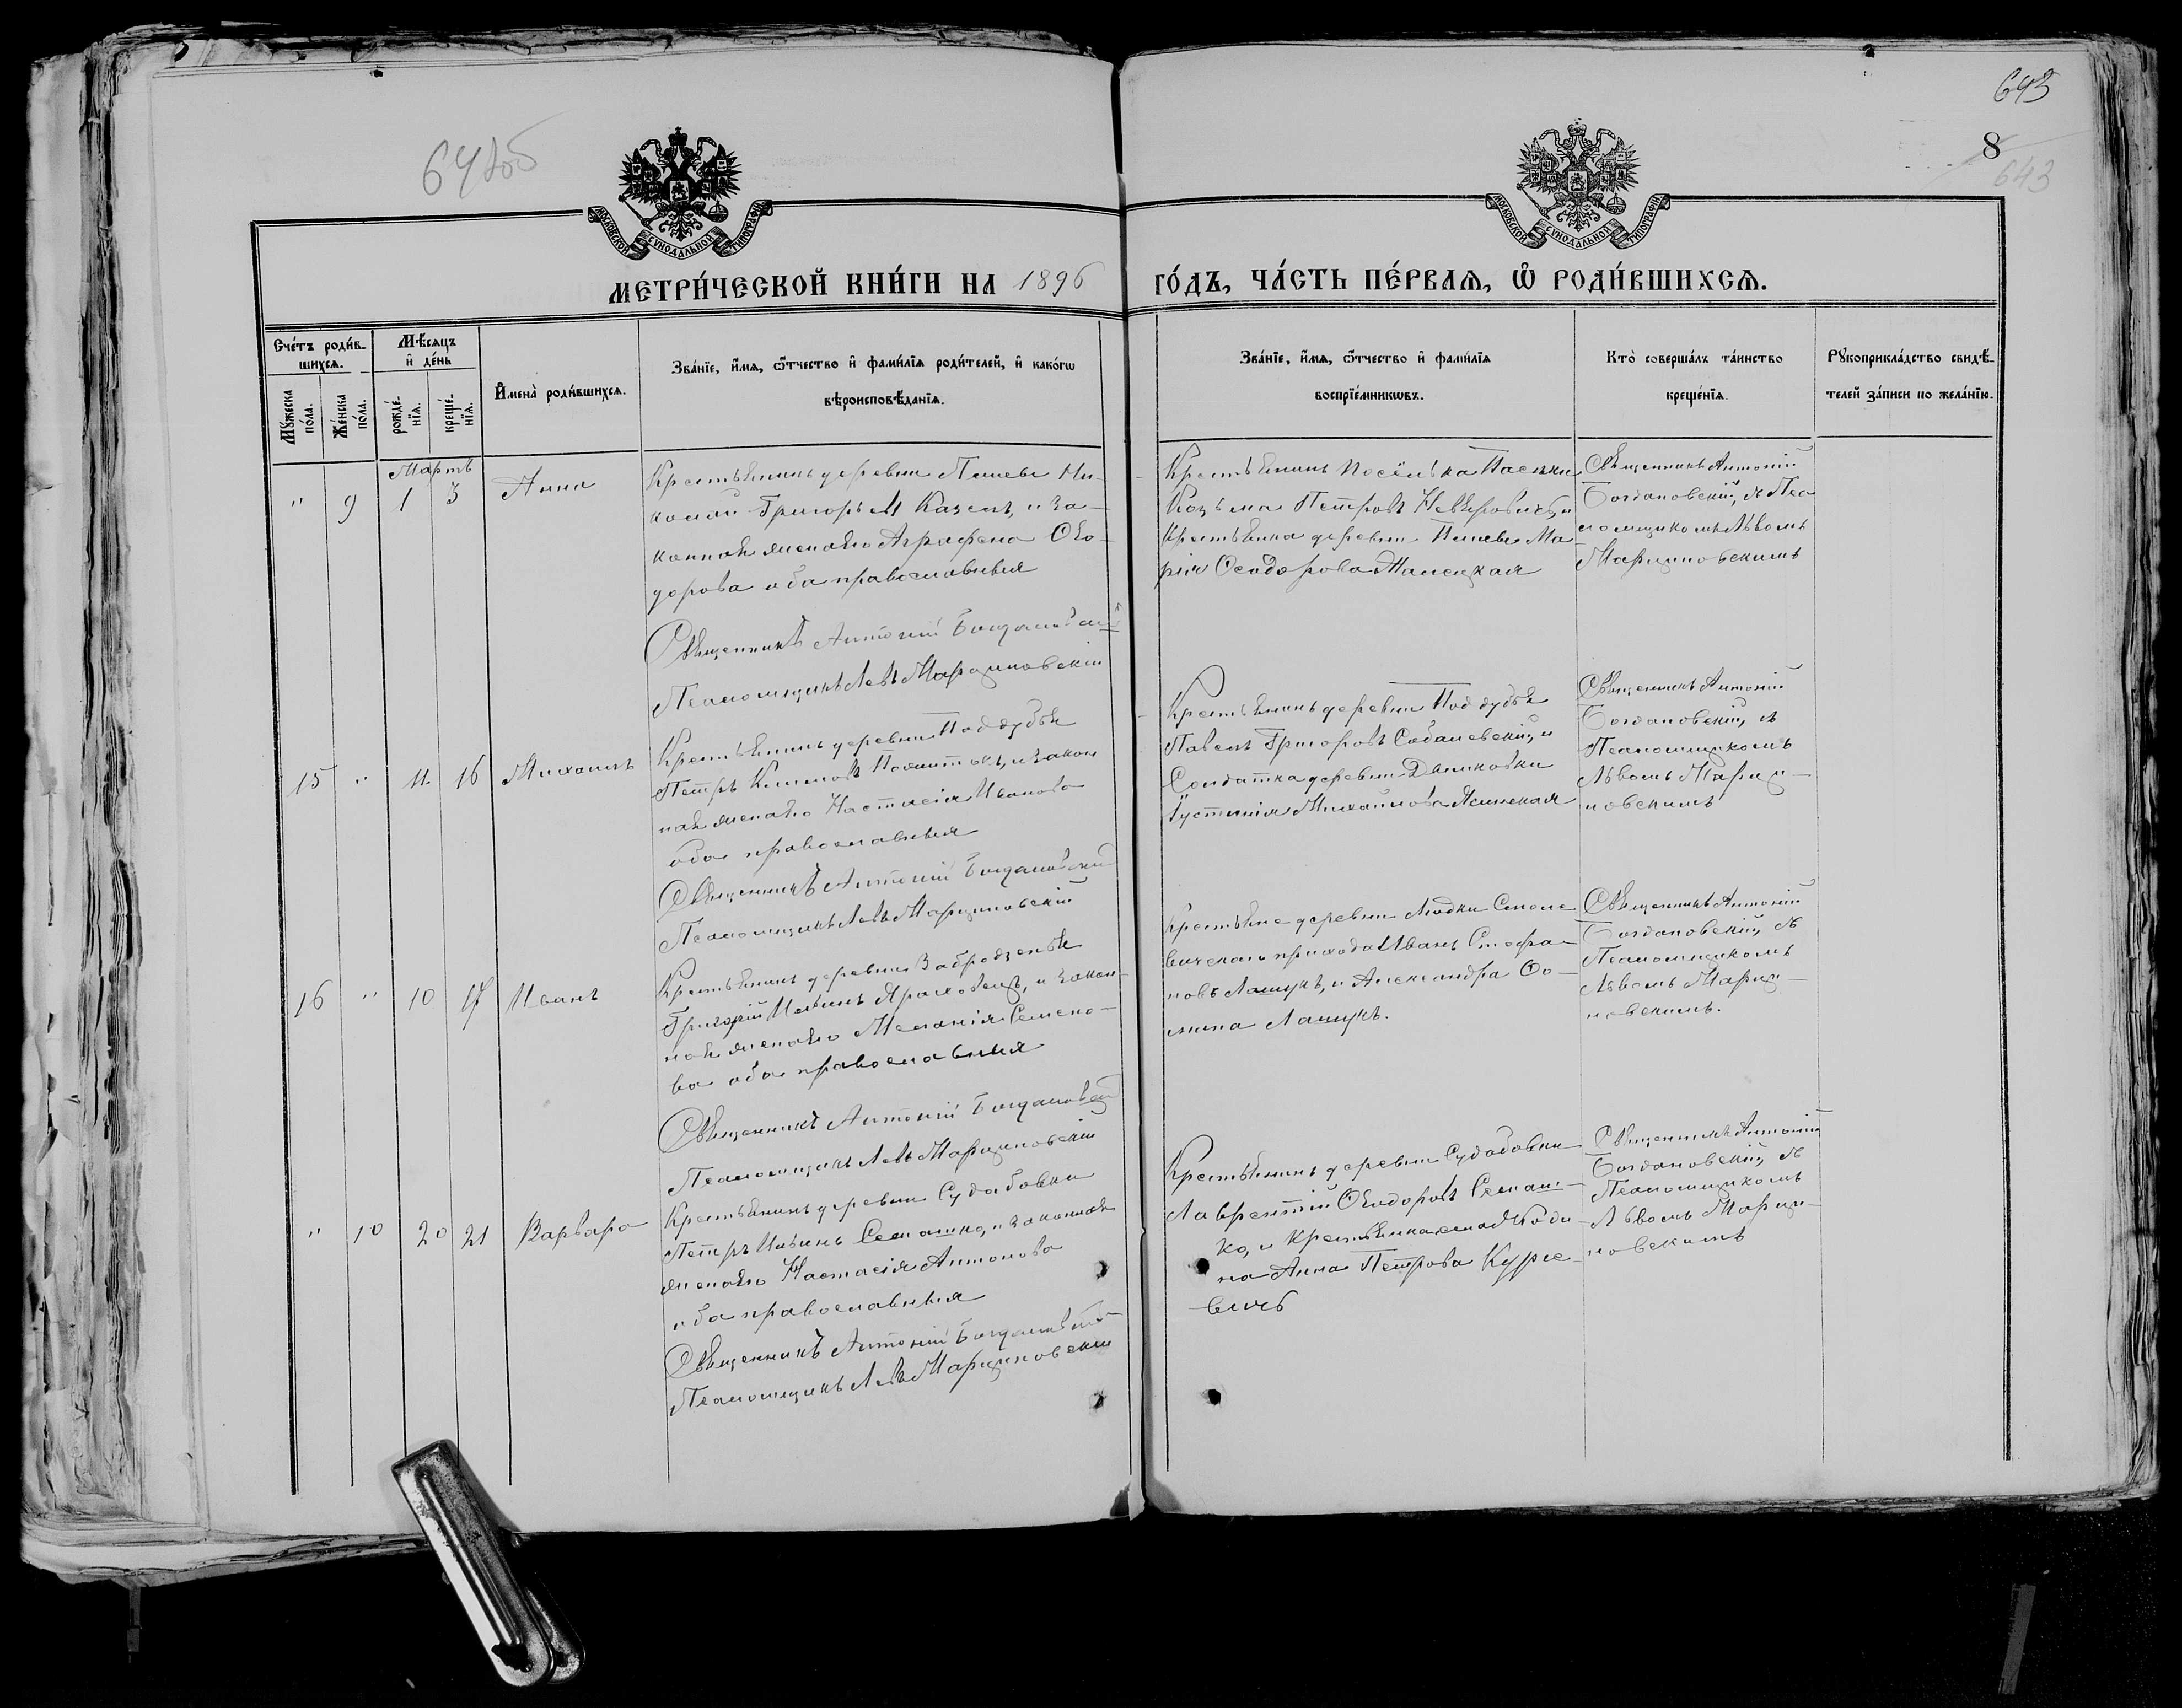 642об
643
8
643
МОСКОВСКОЙ СѴНОДАЛЬНОЙ ТИПОГРАФИИ
МОСКОВСКОЙ СѴНОДАЛЬНОЙ ТИПОГРАФИИ
МЕТРИ́ЧЕСКОЙ КНИ́ГИ НА 1896 ГО́ДЪ, ЧА́СТЬ ПЕ́РВАЯ, Ѽ РОДИ́ВШИХСѦ.
Сче́тъ роди́в-
шихсѧ.
Мꙋ́жеска по́ла.
Же́нска по́ла.
Мѣ́сяцъ и҆ де́нь
рожде́-нїѧ.
креще́-нїѧ.
И҆мена̀ роди́вшихсѧ.
Зва́нїе, и҆́мѧ, ѻ҆́тчество и҆ фами́лїѧ роди́телей, и҆ како́гѡ
вѣроисповѣ́данїѧ.
Зва́нїе, и҆́мѧ, ѻ҆́тчество и҆ фами́лїѧ
воспрїе́мникѡвъ.
Кто̀ соверша́лъ та́инство
креще́нїѧ.
Рꙋкоприкла́дство свидѣ́-
телей за́писи по жела́нїю.
Мартъ
" 9 1 3 Анна
Крестьянинъ деревни Пешевъ Ни-
колай Григорьевъ Казелъ, и за-
конная жена его Аграфена Ѳео-
дорова оба православныя
Священникъ Антоній Богдановскій
Псаломщикъ Левъ Марциновскій
Крестьянинъ посёлка Пасѣки
Козьма Петровъ Неверовичъ, и
Крестьянка деревни Пешевъ Ма-
рія Ѳеодорова Малецкая
Священникъ Антоній
Богдановскій, съ Пса-
ломщикомъ Львомъ
Марциновскимъ
15 " 11 16 Михаилъ
Крестьянинъ деревни Поддубье
Петръ Климовъ Пехитокъ, и закон
ная жена его Настасія Иванова
оба православныя
Священникъ Антоній Богдановскій
Псаломщикъ Левъ Марциновскій
Крестьянинъ деревни Поддубье
Павелъ Григоровъ Собалевскій, и
Солдатка деревни Дениковки
Іустинія Михайлова Ясинская
Священникъ Антоній
Богдановскій, съ
Псаломщикомъ
Львомъ Марци-
новскимъ
16 " 10 17 Иванъ
Крестьянинъ деревни Забродзенье
Григорій Ильинъ Ярмоховецъ, и закон-
ная жена его Меланія Семено-
ва оба православныя
Священникъ Антоній Богдановскій
Псаломщикъ Левъ Марциновскій
Крестьяне деревни Людки Споле-
вичскаго прихода Иванъ Стефа-
новъ Лашукъ, и Александра Ѳо-
мина Лашукъ.
Священникъ Антоній
Богдановскій, съ
Псаломщикомъ
Львомъ Марци-
новскимъ.
" 10 20 21 Варвара
Крестьянинъ деревни Судобовки
Петръ Ильинъ Семашко, и законная
жена его Настасія Антонова
оба православныя
Священникъ Антоній Богдановскій
Псаломщикъ Левъ Марциновскій
Крестьянинъ деревни Судобовки
Лаврентій Ѳеодоровъ Семаш-
ко, и Крестьянка
на Анна Петрова Курсе-
вичъ
Священникъ Антоній
Богдановскій, съ
Псаломщикомъ
Львомъ Марци-
новскимъ